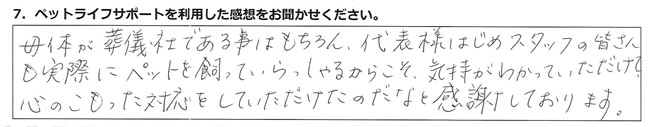 7. ペットライフサポートを利用した感想をお聞かせください。
母体が葬儀社である事はもちろん、代表様はじめスタッフの皆さん
も実際にペットを飼っていらっしゃるからこそ、気持がわかっていただけて
心のこもった対応をしていただけたのだなと感謝しております。